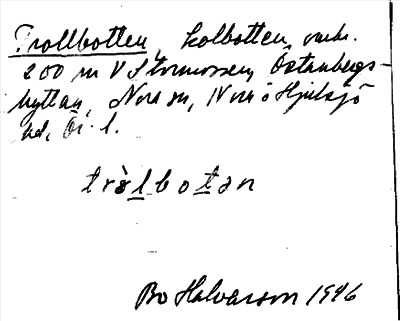 Trollbotten, kolbotten, omkr.
200 m V Stormossen, Östanbergs-
hyttan, Nora sn, Nora o Hjulsjö
hd, Ör. l.
tròlbotan
Bo Halvarson 1946